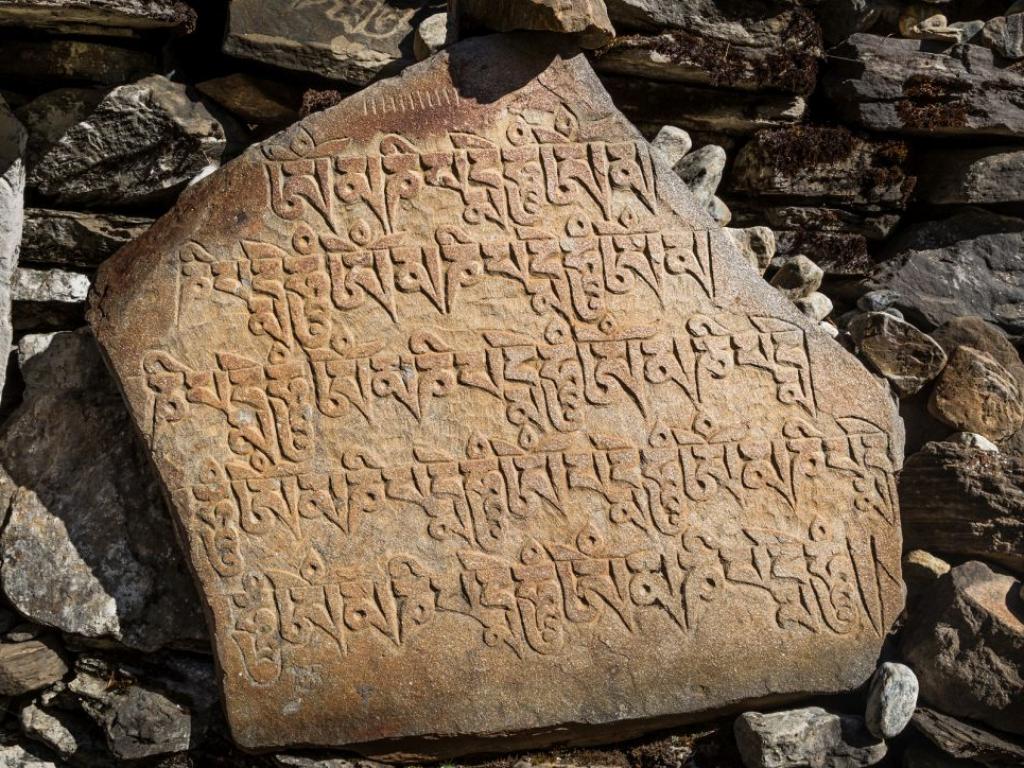 ཨོཾ་མ་ཎི་པདྨེ་ཧཱུྃ་ཨོཾ་མ
ཎི་པདྨེ་ཧཱུྃ་ཨོཾ་མ་ཎི་པདྨེ་ཧཱུྃ་ཨོཾ་མ
ཎི་པདྨེ་ཧཱུྃ་ཨོཾ་མ་ཎི་པདྨེ་ཧཱུྃ་ཨོཾ་མ་ཎི་པདྨེ
ཧཱུྃ་ཨོཾ་མ་ཎི་པདྨེ་ཧཱུྃ་ཨོཾ་པདྨེ་ཧཱུྃ་ཨོཾ་མ་ཎི་པདྨེ
ཧཱུྃ་ཨོཾ་མ་ཎི་པདྨེ་ཧཱུྃ་ཨོཾ་མ་ཎི་པདྨེ་ཧཱུྃ།